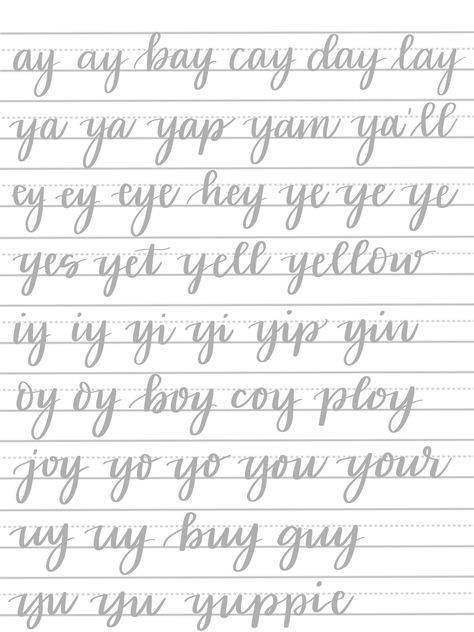 ay ay bay cay day lay
ya ya yap yam ya'll
ey ey eye hey ye ye ye
yes yet yell yellow
iy iy yi yi yip yin
oy oy boy coy ploy
joy yo yo you your
uy uy buy guy
yu yu yuppie